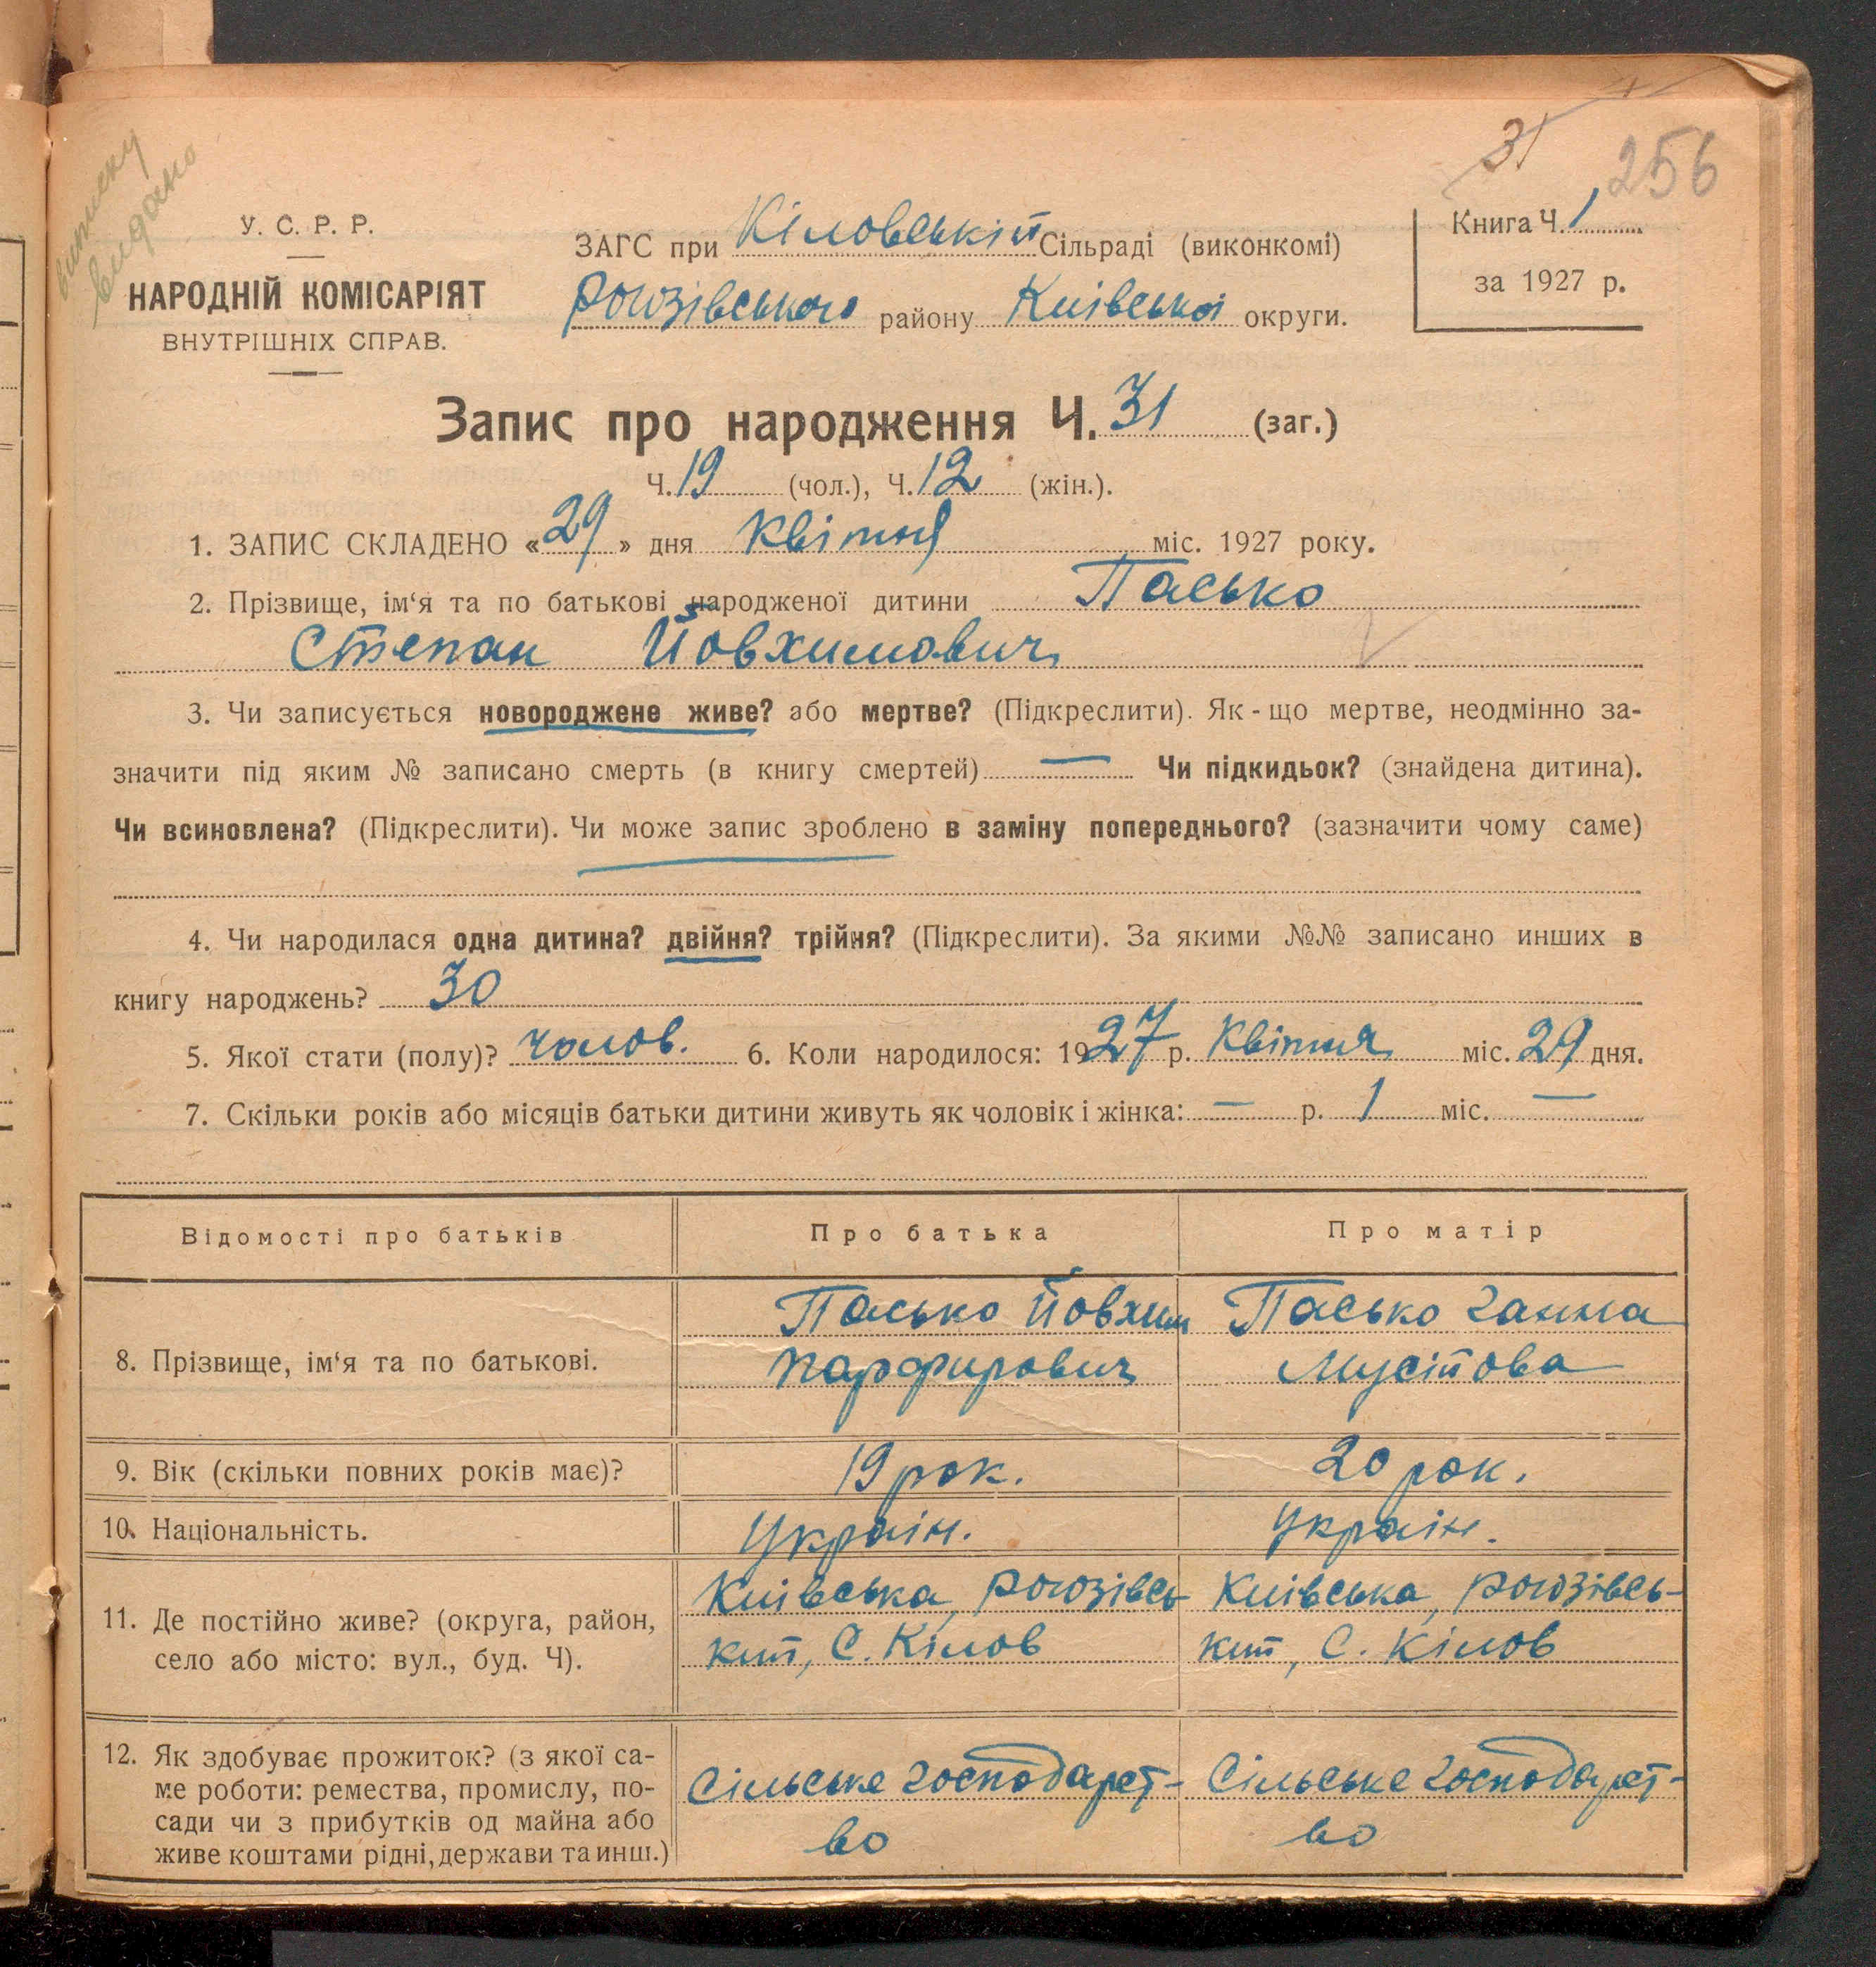 виписку
видано
31 256
У. С. Р. Р.
НАРОДНІЙ КОМІСАРІЯТ
ВНУТРІШНІХ СПРАВ.
ЗАГС при Кіловській Сільраді (виконкомі)
Рогозівського району Київської округи.
Книга Ч. 1
за 1927 р.
Запис про народження Ч. 31 (заг.)
Ч. 19 (чол.), Ч. 12 (жін.).
1. ЗАПИС СКЛАДЕНО «29» дня Квітня міс. 1927 року.
2. Прізвище, ім‘я та по батькові народженої дитини Пасько
Степан Йовхимович
3. Чи записується новороджене живе? або мертве? (Підкреслити). Як-що мертве, неодмінно за-
значити під яким № записано смерть (в книгу смертей) — Чи підкидьок? (знайдена дитина).
Чи всиновлена? (Підкреслити). Чи може запис зроблено в заміну попереднього? (зазначити чому саме)
4. Чи народилася одна дитина? двійня? трійня? (Підкреслити). За якими №№ записано инших в
книгу народжень? 30
5. Якої стати (полу)? чолов. 6. Коли народилося: 1927 р. Квітня міс. 29 дня.
7. Скільки років або місяців батьки дитини живуть як чоловік і жінка: — р. 1 міс. —
Відомості про батьків Про батька Про матір
8. Прізвище, ім‘я та по батькові.
Пасько Йовхим
Парфирович
Пасько Ганна
Мусіїова
9. Вік (скільки повних років має)? 19 рок. 20 рок.
10. Національність. Україн. Україн.
11. Де постійно живе? (округа, район,
село або місто: вул., буд. Ч).
Київська, Рогозівсь-
кий, С. Кілов
Київська, Рогозівсь-
кий, С. Кілов
12. Як здобуває прожиток? (з якої са-
ме роботи: ремества, промислу, по-
сади чи з прибутків од майна або
живе коштами рідні, держави та инш.)
Сільське господарст-
во
Сільське господарст-
во